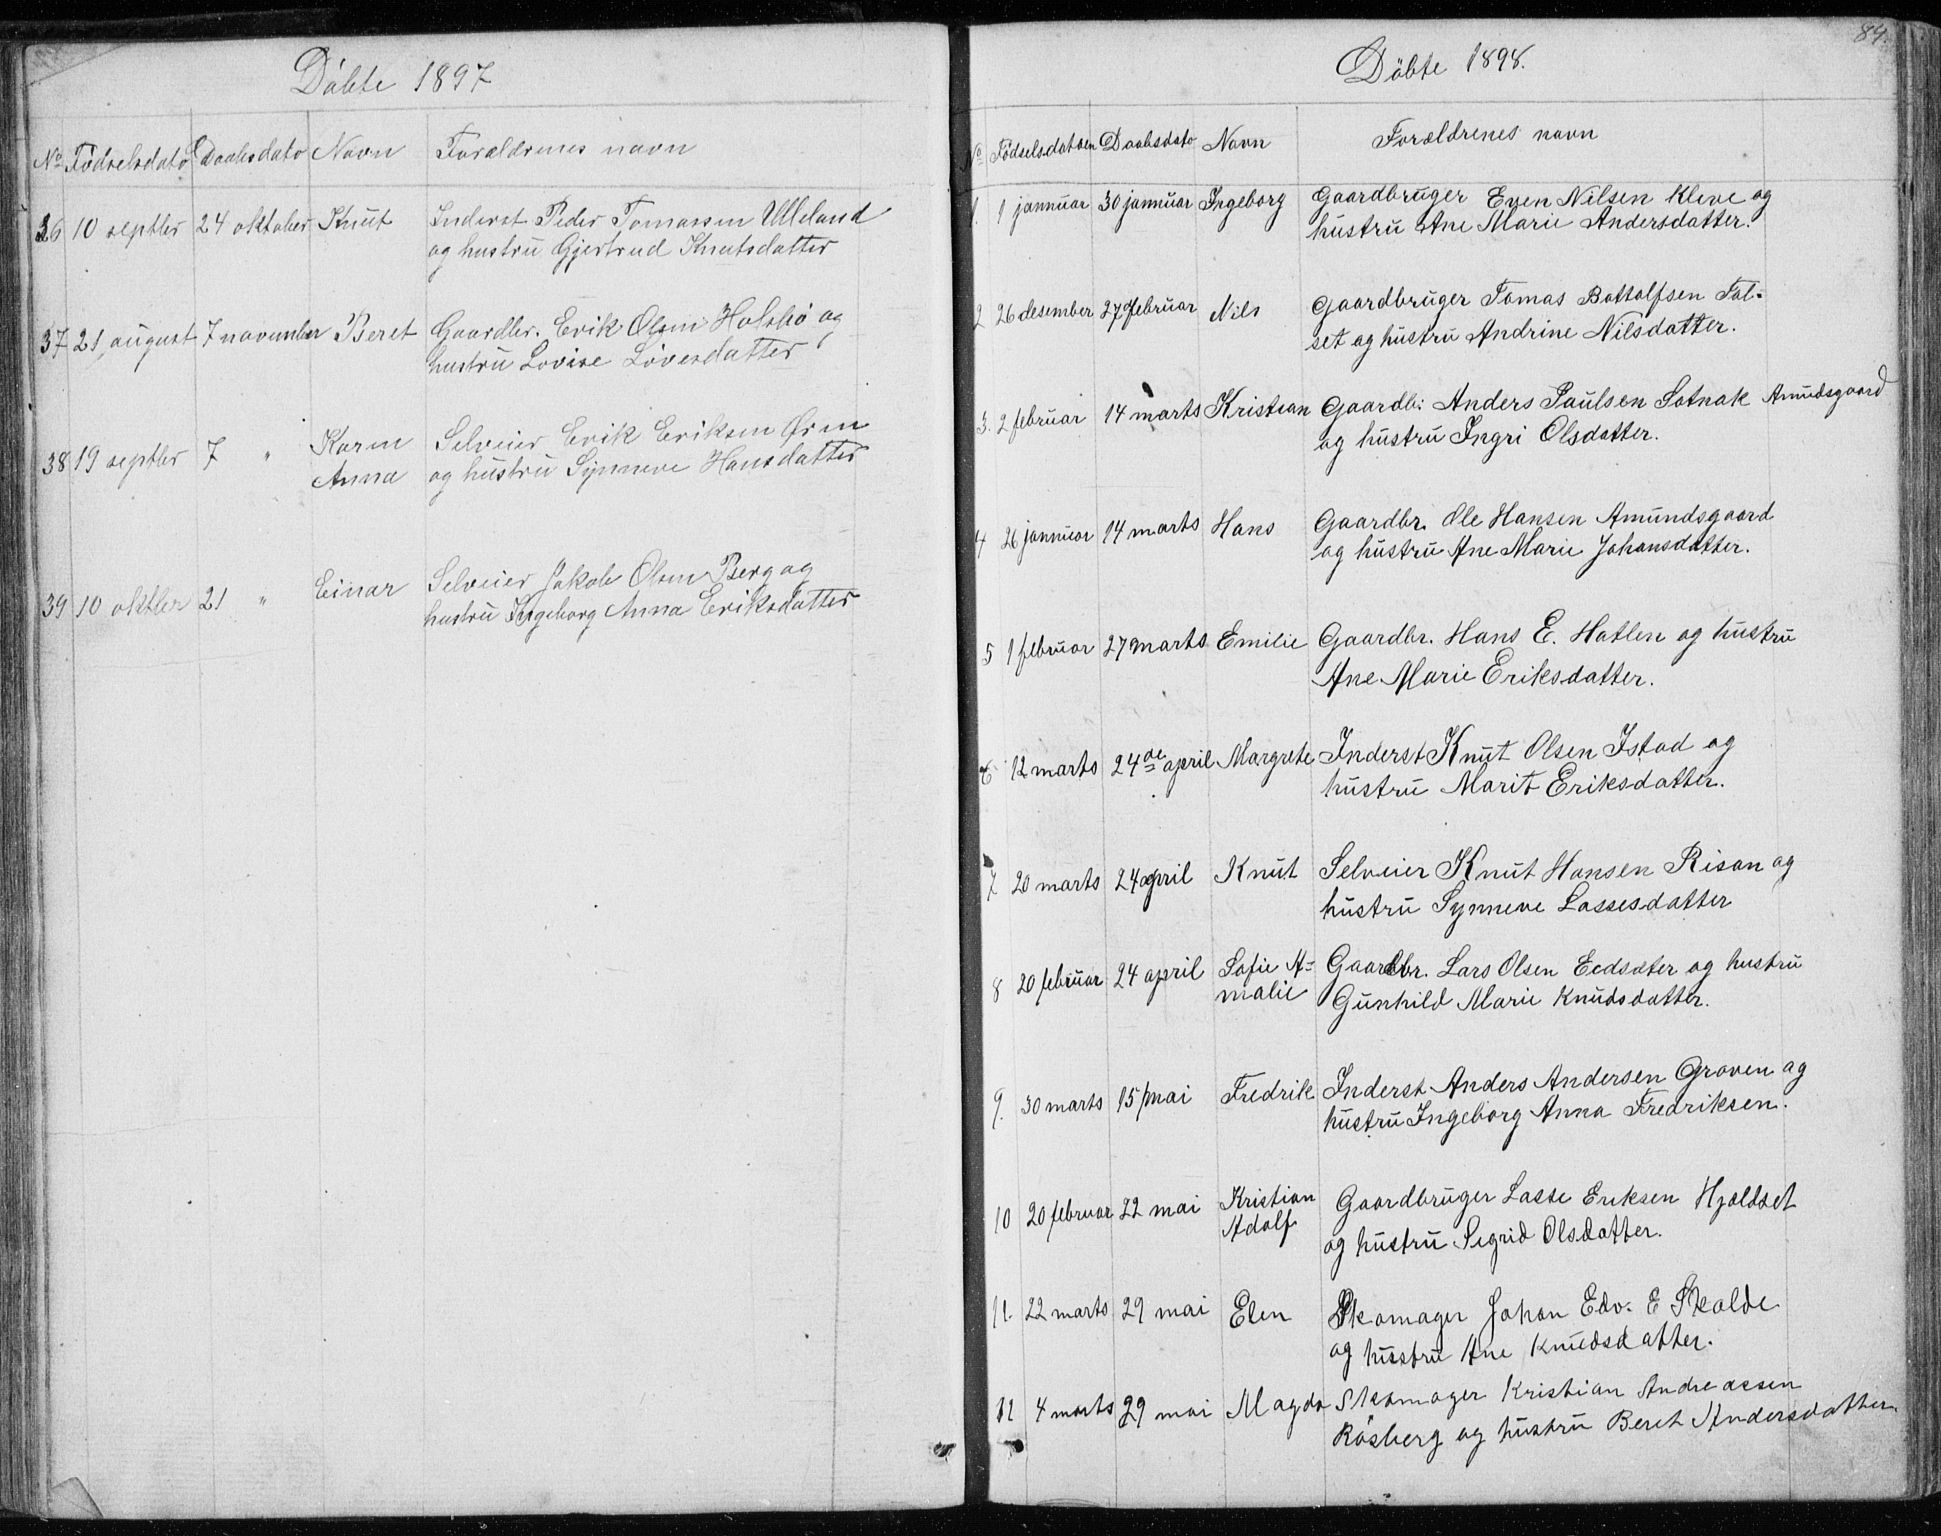 Döbte 1897
No Födselsdato Daabsdato Navn Forældrenes navn
36 10 septbr 24 oktober Knut Inderst Peder Tomassen Ulleland
og hustru Gjertrud Knutsdatter
37 21 august 7 november Beret Gaardbr. Erik Olsen Holsbö og
hustru Lovise Lövesdatter
38 19 septbr 7 " Karen Selveier Erik Eriksen Örn
Anna og hustru Synneve Hansdatter
39 10 oktbr 21 " Einar Selveier Jakob Olsen Berg og
hustru Ingeborg Anna Eriksdatter
84.
Döbte 1898.
No Födselsdatoen Daabsdato Navn Forældrenes navn
1. 1 januar 30 januar Ingeborg Gaardbruger Even Nilsen Kleve og
hustru Ane Marie Andersdatter.
2 26 desember 27 februar Nils Gaardbruger Tomas Bottolfsen Tal-
set og hustru Andrine Nilsdatter.
3. 2 februar 14 marts Kristian Gaardb: Anders Paulsen Sotnak Amudsgaard
og hustru Ingri Olsdatter.
4 26 januar 14 marts Hans Gaardbr. Ole Hansen Amundsgaard
og hustru Ane Marie Johansdatter.
5 1 februar 27 marts Emilie Gaardbr. Hans E. Hatlen og hustru
Ane Marie Eriksdatter.
6 12 marts 24de april Margrete Inderst Knut Olsen Istad og
hustru Marit Eriksdatter.
7 20 marts 24 april Knut Selveier Knut Hansen Risan og
hustru Synneve Lassesdatter
8 20 februar 24 april Sofie A= Gaardbr. Lars Olsen Eedsæter og hustru
malie Gunhild Marie Knudsdatter.
9. 30 marts 15 mai Fredrik Inderst Anders Andersen Groven og
hustru Ingeborg Anna Fredriksen.
10 20 februar 22 mai Kristian Gaardbruger Lasse Eriksen Hjældset
Adolf og hustru Sigrid Olsdatter.
11. 22 marts 29 mai Elen Skomager Johan Edv. E Skalde
og hustru Ane Knudsdatter.
12 4 marts 29 mai Magda Skomager Kristian Andreassen
Råsberg og hustru Beret Andersdatter.